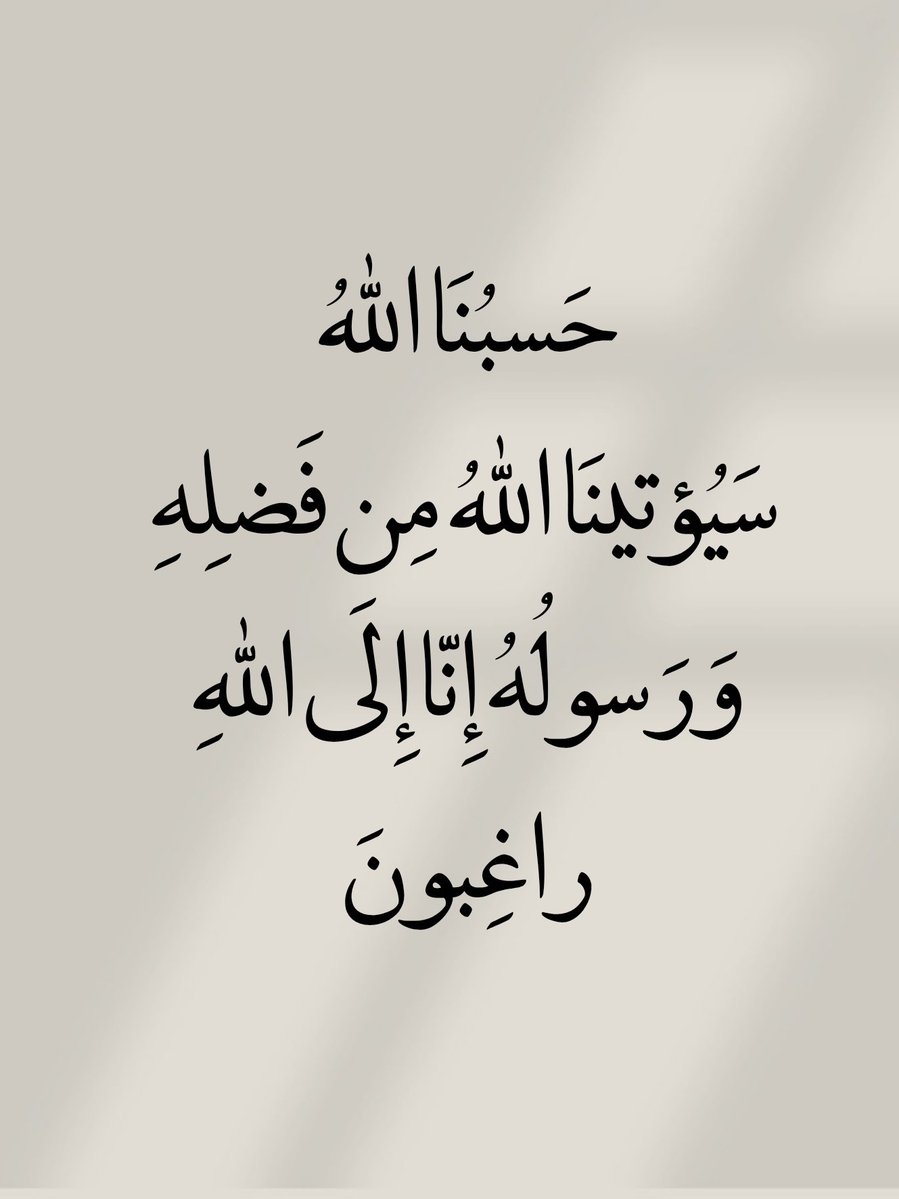 حَسبُنَا اللَّهُ
سَيُؤتينَا اللَّهُ مِن فَضلِهِ
وَرَسولُهُ إِنّا إِلَى اللَّهِ
راغِبونَ